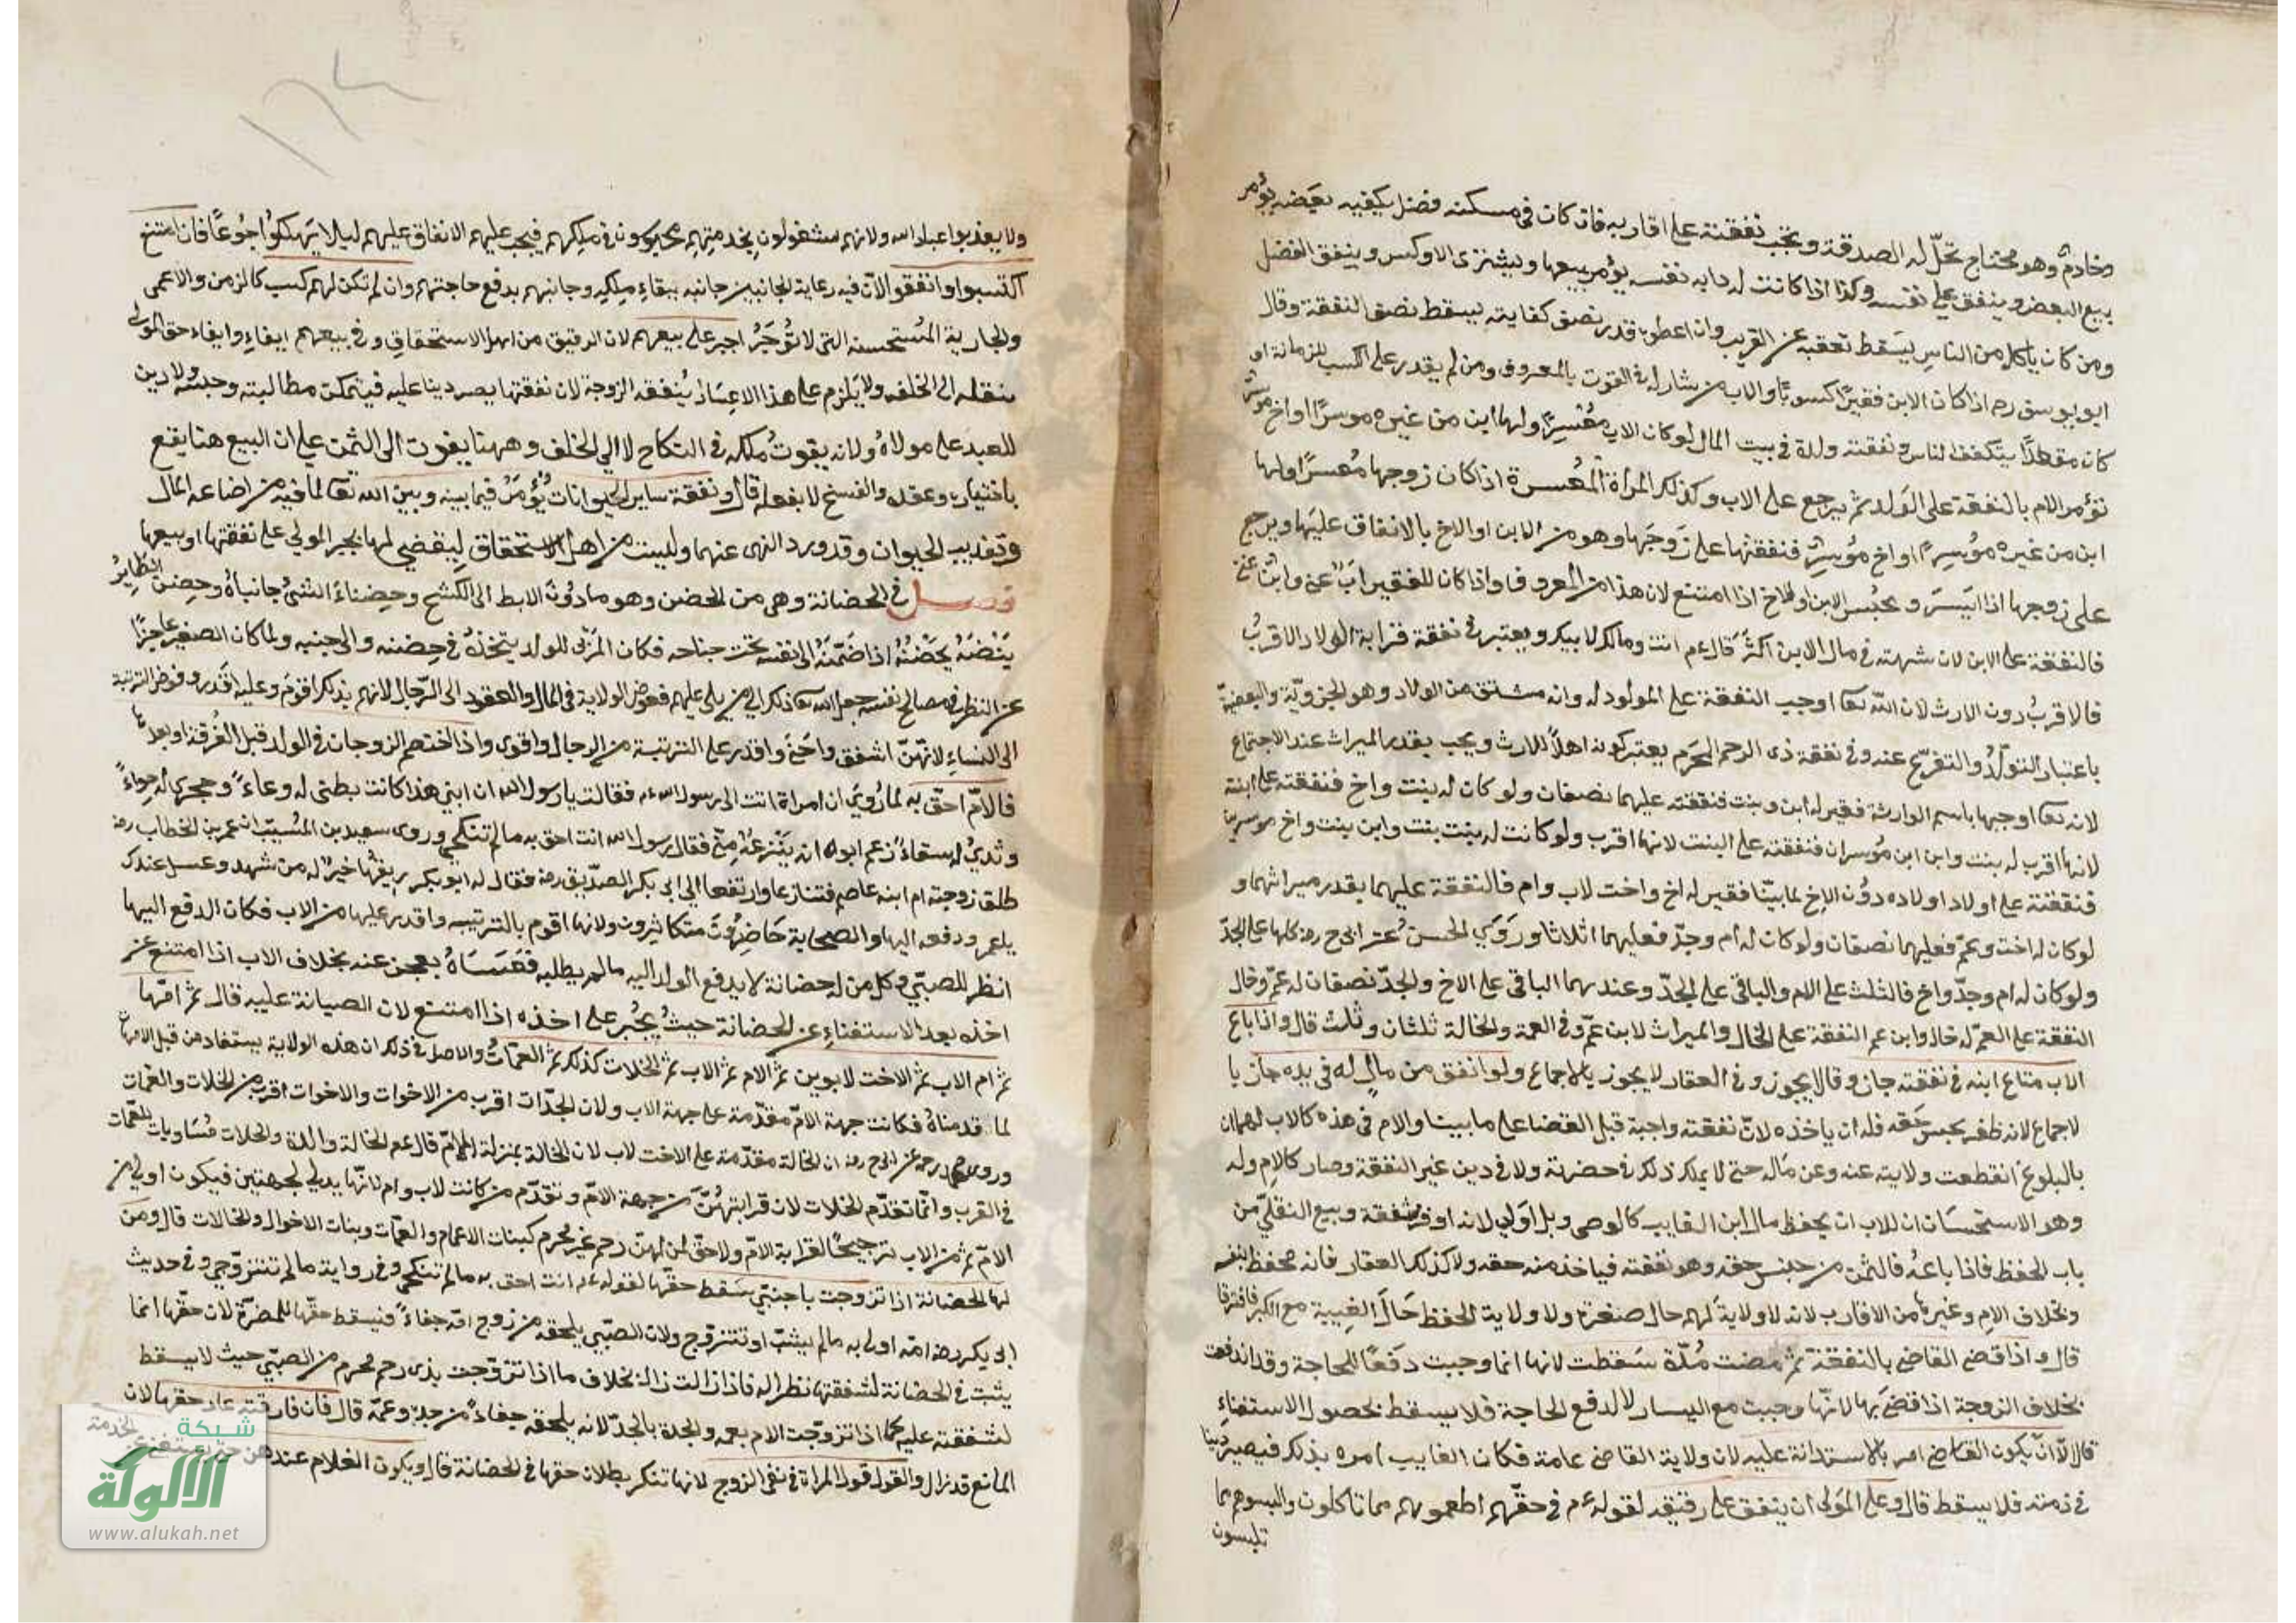 وخادم وهو محتاج تحلّ له الصدقة وتجب نفقته على اقاربه فان كان في مسكنه فضل يكفيه بعضه يؤمر
ببيع البعض وينفق على نفسه وكذا اذا كانت له دابه نفسه يؤمر ببيعها ويشتري الاوكس وينفق الفضل
ومن كان ياكل من الناس يسقط نفقته عن القريب وان اعطوه قدر نصف كفايته يسقط نصف النفقة وقال
ابو يوسف رح اذا كان الابن فقيرًا كسوبًا والاب من يشاركه في القوت بالمعروف ومن لم يقدر على الكسب لزمانة او
كان مقعدًا يتكفف الناس ونفقته ولده في بيت المال لو كان الاب مُعْسِرًا ولها ابن من غيره موسرًا او اخ موسر
تؤمر الام بالنفقة على الولد ثم يرجع على الاب وكذلك المرأة المُعسرة اذا كان زوجها مُعسرًا ولها
ابن من غيره مؤسر او اخ مُوسِر فنفقتها على زوجها وهو من الابن او الاخ بالانفاق عليها ويرجع
على زوجها اذا ايسَرَ ويحبُس الابن او الاخ اذا امتنع لان هذا من المعروف واذا كان للفقير ابٌ غني وابن غني
فالنفقة على الابن لان شبهته في مال الابن اكثر قال عم انت ومالك لابيك ويعتبر في نفقة قرابة الولاد الاقربُ
فالاقربُ دون الارث لان اللّه تعا اوجب النفقة على المولود له وانه مشتق من الولاد وهو الجزويّة والبعضيّة
باعتبار التولّد والتفريع عنه وفي نفقة ذى الرحم المحَرم يعتبر كونه اهلاً للارث ويجب بقدر الميراث عند الاجتماع
لانه تعا اوجبها باسم الوارث فقير له ابن وبنت فنفقته عليهما نصفان ولو كان له بنت واخ فنفقته على ابنته
لانها اقرب له بنت وابن ابن مُوسران فنفقته على البنت لانها اقرب ولو كانت له بنت بنت وابن بنت واخ موسرين
فنفقته على اولاد اولاده دوُن الاخ لما بيّنا فقير له اخ واخت لاب وام فالنفقة عليهما بقدر ميراثهما و
لو كان له اخت وعمّ فعليهما نصفان ولو كان له أم وجدّ فعليهما اثلاثا وروَي الحسنُ عن ابى ح رضه كلها على الجدّ
ولو كان له ام وجدّ واخ فالثلث على الام والباقي على الجدّ وعندهما الباقي على الاخ والجدّ نصفان له عمّ وخال
النفقة على العمّ له خال وابن عم النفقة على الخال والميراث لابن عمّ وفي العمة والخالة ثلثان وثلث قال واذا باع
الاب متاع ابنه في نفقته جاز وقالا يجوز وفي العقار لا يجوز بالاجماع ولو انفق من مالٍ له في يده جاز با
لاجماع لانه ظفر بجبس حَقه فله ان ياخذه لانّ نفقته واجبة قبل القضا على ما بينا والام في هذه كالاب لهما ان
بالبلوغ انقطعت ولايته عنه وعن مَاله حتى لا يملك ذلك في حضرته ولا في دين غير النفقة وصار كالام وله
وهو الاستحسَان ان للاب ان يحفظ مال ابن الغايب كالوصى وبل اوَلي لانه اوفر شفقة وبيع النقليّ من
باب الحفظ فاذا باعهُ فالثمن من جنس حقه وهو نفقته فياخذ منه حقه ولا كذلك العقار فانه محفظ بنفسه
وبخلاف الام وغيرها من الاقارب لانه لا ولايةَ لهم حال صغره ولا ولاية الحفظ حَالَ الغيبة مع الكبر فافترقا
قال واذا قضى القاضي بالنفقة ثم مضت مُدّة سَقطت لانها انما وجبت دفعًا للحاجة وقد اندفعت
بخلاف الزوجة اذا قضى بها لانّها وجبت مع اليسار لا لدفع الحاجة فلا يسقط بحصول الاستغناء
قال لاّ انّ يكون القاضي امر بالاستدانة عليه لان ولاية القاضى عامة فكان الغايب امره بذلك فيصير دينا
في ذمته فلا يسقط قال وعلى المَولى ان ينفق على رقيقه لقوله عم في حقّهم اطعموهم مما تاكلون والبسوهم مما
تلبسون
ولا يعذبوا عباد الله ولانهم مشغولون بخدمتهم محبوسون في ملكهم فيجب عليهم الانفاق عليهم ليلا يَهلكوُا جُوعًا فان امتنع
اكتسبوا وانفقوا لانّ فيه رعاية الجانبين جانبه ببقاء مِلكِه وجانبهم بدفع حاجتهم وان لم تكن لهم كسب كالزمن والاعمى
والجارية المُستحسنه التى لا تُؤجَرُ اجبر على بيعهم لان الرقيق من اهل الاستحقاقِ وفي بيعهم ايفاءِ وايفاء حق المولى
بنقله الى الخلف ولا يَلزم على هذا الاعسَار بُنفقه الزوجة لان نفقتها يصر دينا عليه فيتمكن مطالبته وحبسُه ولا دين
للعبد على مولاهُ ولانه يفوتُ ملكه في النكاح لا الي الخلف وههنا يفوت الى الثمن على ان البيع هنا يقع
باختياره وعقده والفسخ لا بفعله قال ونفقة ساير الحيوانات يُؤمَرُ فيما بينه وبين الله تعا لما فيه من اضاعه المال
وتعذيب الحيوان وقد ورد النهى عنهما وليست من اهل الاستحقاق لِيقضي لها بجبر المولى على نفقتها او بيعها
فصل في الحضانة وهى من الحضن وهو ما دوُنَ الابط الى الكشح وحِضناءَ الشئ جانباهُ وحِضن الطايرُ
بَيْضَهُ يَحضُنُهُ اذا ضَمَّهُ الى نفسه تحت جناحه فكان المرَبى للولد يتخذهُ في حِضنه والى جنبه ولما كان الصغير عاجزًا
عن النظر في مصالح نفسه جعل الله تعا ذلك الي من يلى عليهم ففوض الولاية في المال والعقود الى الرّجال لانهم بذلك اقوَم وعليه اقدر وفوض التربية
الى النساءِ لانهّنّ اشفق واحَنى واقدر على التربية من الرجال واقوى واذا اختصم الزوجات في الولد قبل الفُرقة او بعدها
فالامّ احقّ به لما رُويَ ان امراة اتت الى رسول الله عم فقالت يا رسول الله ان ابني هذا كانت بطنى له وعاءً وحجري له حِواءً
وثدىُ له سقاءً زعم ابوه انه يَنْزِعُهُ مِنّي فقال رسول الله انت احق به ما لم تنكحي وروى سعيد بن المُسيّب ان عمر بن الخطاب رضه
طلق زوجته ام ابنه عاصم فتنازعا وارتفعا الى ابى بكر الصدّيق رضه فقال له ابو بكر ريقُها خيرٌ له من شهد وعسل عندك
يا عمر ودفعه اليها والصحابة حَاضِرُونَ متكاثرون ولانها اقوم بالتربية واقدر عليها من الاب فكان الدفع اليها
انظر للصبّي وكل من له حضانة لا يدفع الولد اليه ما لم يطلبه فعَسَاهُ يعجز عنه بخلاف الاب اذا امتنع عن
اخذه بعد الاستغناءِ عن الحضانة حيثُ يجُبر على اخذه اذا امتنع لان الصيانة عليه قال ثم امّها
ثم ام الاب ثم الاخت لابوين ثم الام ثم الاب ثم الخلات كذلك ثم العمّاتُ والاصل في ذلك ان هذه الولاية يستفاد من قبل الامهات
لما قدمناهُ فكانت جهة الامّ مقدّمة على جهة الاب ولان الجدّات اقرب من الاخوات والاخوات اقرب من الخلات والعمّات
وروى عن ابى ح رضه ان الخالة مقدّمة على الاخت لاب لان الخالة بمنزلة الامّ قال عم الخالة والدة والخلات مُسَاويات للعمّات
في القرب وانّما تقدّم الخلات لان قرابتهُنّ من جهة الامّ ونقدّم من كانت لاب وام لانّها يدلي لجهتين فيكون اولي من
الامّ ثم من الاب ترجيحًا لقرابة الامّ ولا حقّ لمن لهنّ رحم غير محرم كبنات الاعمام والعمّات وبنات الاخوال والخالات قال ومن
لها الحضانة اذا تزوجت باجنبّي سَقط حقّها لقوله عم انت احق به ما لم تنكحي وفي رواية ما لم تتزوّجي وفي حديث
ابى بكر رضه امّه اولى به ما لم يشبّ او تتزوّج ولان الصبّي يلحقه من زوج امّه جفاءً فيسقط حقّها للمضرّة لان حقّها انما
يثبت في الحضانة لشفقتها نظرا له فاذا زالت زال بخلاف ما اذا تزوّجت بذى رحم محرم من الصبّي حيث لا يسقط
لشفقته عليه كما اذا تزوّجت الام بعمه والجدة بالجدّ لانه يلحقه جفاءٌ من جدّه وعمّه قال فان فارقته عاد حقها لان
المانع قد زال والقول قول المراة في نفى الزوج لانها تنكر بطلان حقها في الحضانة قال ويكون الغلام عندهن حتى يستغني عن الخدمة
شبكة
الألوكة
www.alukah.net